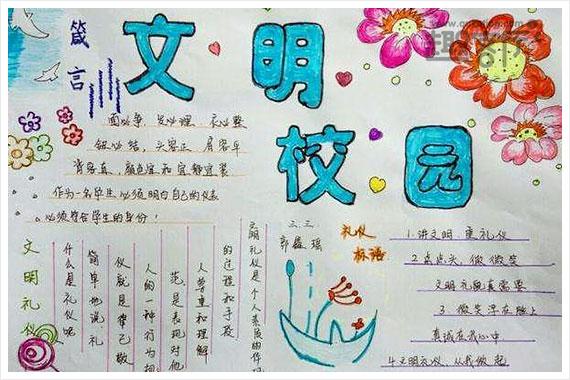 文明
校园
箴言
面必净 发必理 衣必整
钮必结,头容正 肩容平
背容直,颜色宜和宜静宜
作为一名学生必须明白自己的仪表
必须符合学生的身份!
文明礼仪
什么是礼仪呢
简单地说礼
仪就是律己敬
人的一种行为规
范,是表现对他
人尊重和理解
的过程和手段
文明礼仪是个人素质的体
三.三
郭 瑶
礼仪
标语
1.讲文明.重礼仪
2.点点头,微微笑
文明礼貌真需要
3.微笑浮在脸上
真诚在我心中
4.文明礼仪,从我做起